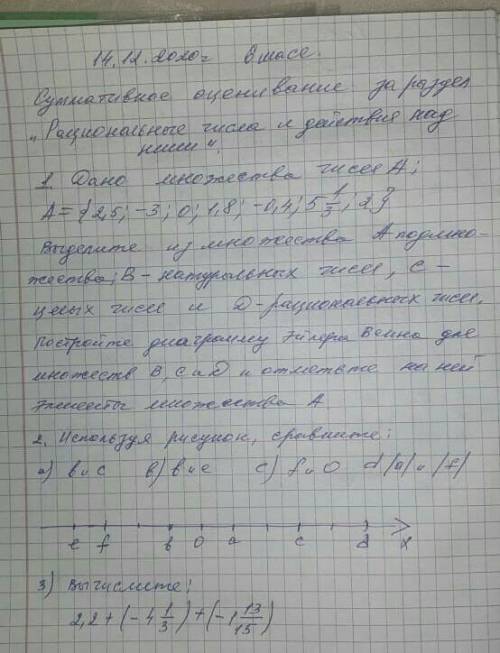 14.12.2020г 6 класс.
Суммативное оценивание за раздел
„Рациональные числа и действия над
ними".
1 Дано множества чисел А;
А = {2,5; -3; 0; 1,8; -0,4; 5 1/3; 2}
Выделите из множества А подмно-
жества; В - натуральных чисел, С -
целых чисел и D - рациональных чисел.
Постройте диаграмму Эйлера Венна для
множеств В, С и D и отметьте на ней
элементы множества А
2. Используя рисунок, сравните:
а) b и c в) b и e с) f и 0 d |a| и |f|
e f b 0 a c d x
3) Вычислите;
2,2 + (-4 1/3) + (-1 13/15)